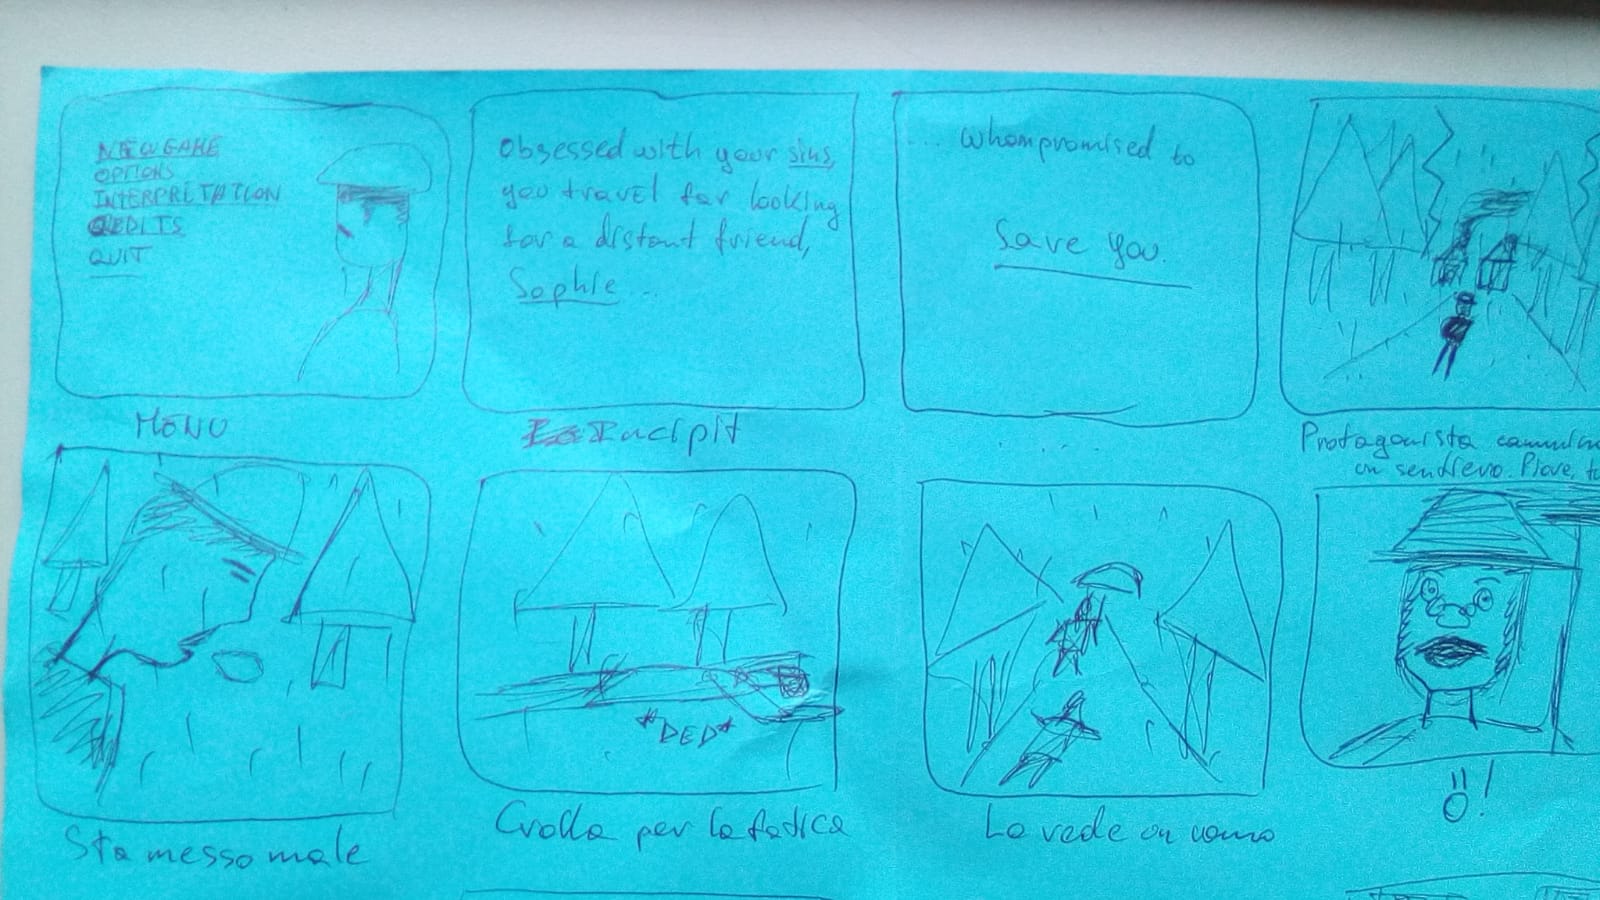 NEW GAME
OPTIONS
INTERPRETATION
CREDITS
QUIT
MENU
Obsessed with your sins,
you travel far looking
for a distant friend,
Sophie...
Incipit
... whom promised to
Save you.
...
Protagonista cammin
un sentiero. Piove, t
Sta messo male
*DED*
Crolla per la fatica
Lo vede un uomo
Ö!